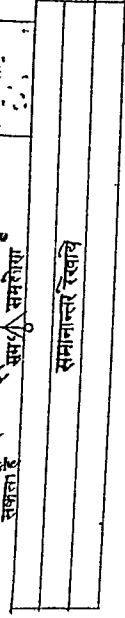 सकता है
सम समरोगा
समानान्तर रेखायें